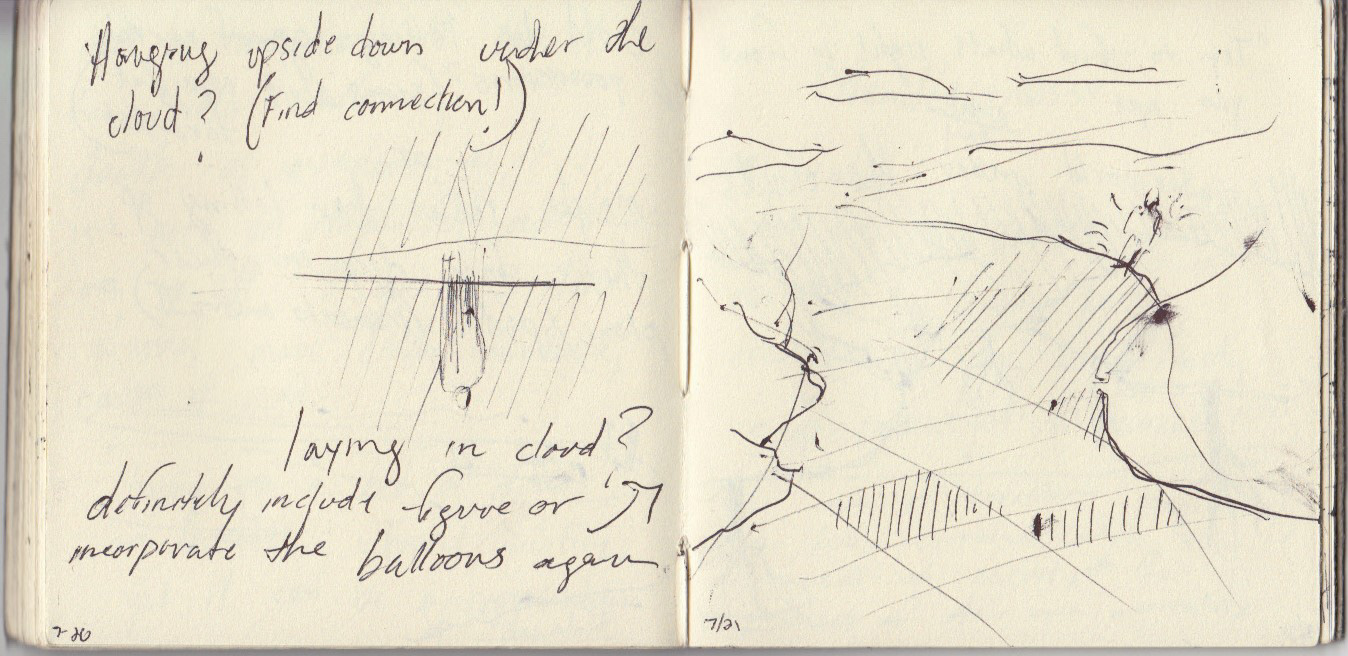 Hanging upside down under the
cloud? (Find connection!)
laying in cloud?
definitely include figure or
incorporate the balloons again
7-20
7/21